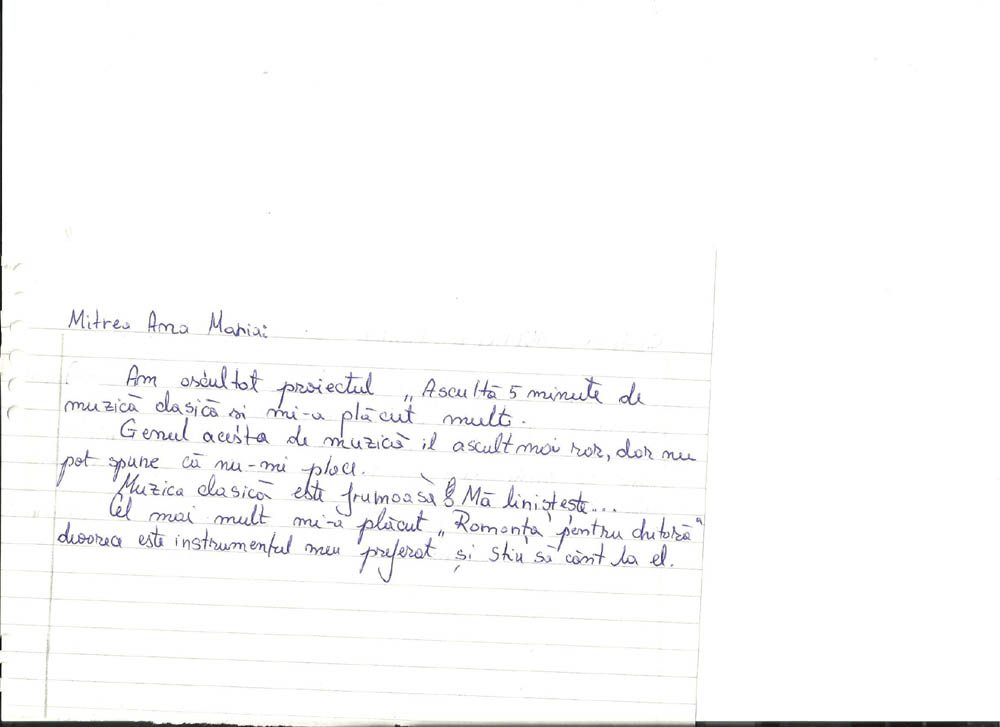 Mitrea Ana Maria:
Am ascultat proiectul „Ascultă 5 minute de
muzică clasică și mi-a plăcut mult.
Genul acesta de muzică îl ascult mai rar, dar nu
pot spune că nu-mi place.
Muzica clasică este frumoasă Mă liniștește...
Cel mai mult mi-a plăcut „Romanța pentru chitară"
deoarece este instrumentul meu preferat și știu să cânt la el.